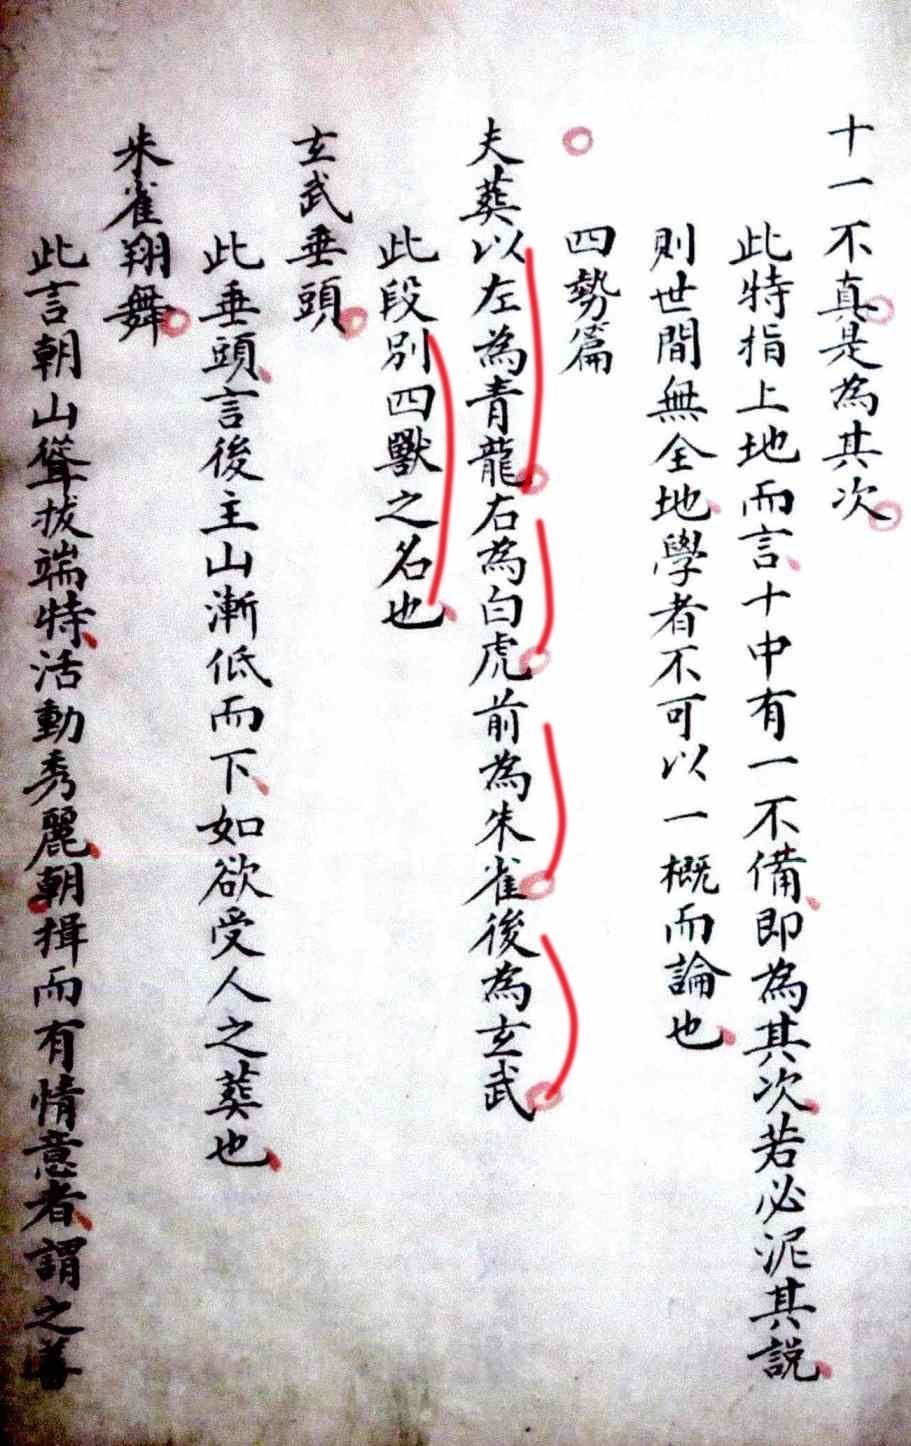 十一不真是為其次
此特指上地而言十中有一不備即為其次若必泥其說
則世間無全地學者不可以一概而論也
四勢篇
夫葬以左為青龍右為白虎前為朱雀後為玄武
此段別四獸之名也
玄武垂頭
此垂頭言後主山漸低而下如欲受人之葬也
朱雀翔舞
此言朝山聳拔端特活動秀麗朝揖而有情意者謂之